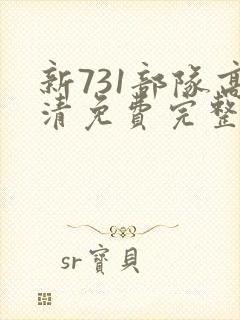 新731部隊高
清免費完整
sr寶貝